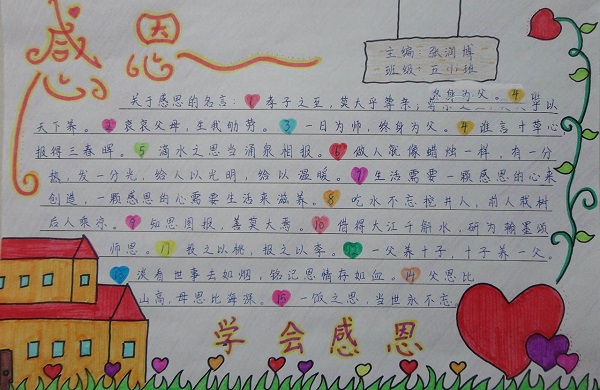 感恩
主编：张润博
班级：五小班
关于感恩的名言：1 孝子之至，莫大乎尊亲；
终身为父。4
以
天下养。2 哀哀父母，生我劬劳。3 一日为师，终身为父。4 谁言寸草心
报得三春晖。5 滴水之恩当涌泉相报。6 做人就像蜡烛一样，有一分
热，发一分光，给人以光明，给以温暖。7 生活需要一颗感恩的心来
创造，一颗感恩的心需要生活来滋养。8 吃水不忘挖井人，前人栽树
后人乘凉。9 知恩图报，善莫大焉。10 借得大江千斛水，研为翰墨颂
师恩。11 投之以桃，报之以李。12 一父养十子，十子养一父。
13 淡看世事去如烟，铭记恩情存如血。14 父恩比
山高，母恩比海深。15 一饭之恩，当世永不忘。
学会感恩